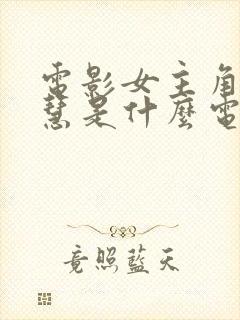 電影女主角
慧是什麼電
竟照藍天